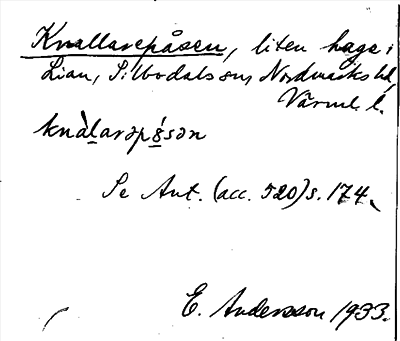 Knallarepåsen, liten hage i
Lian, Silbodals sn, Nordmarks hd,
Värml. l.
knàlarəpǻsən
Se Ant. (acc. 520) s. 174.
E. Andersson 1933.